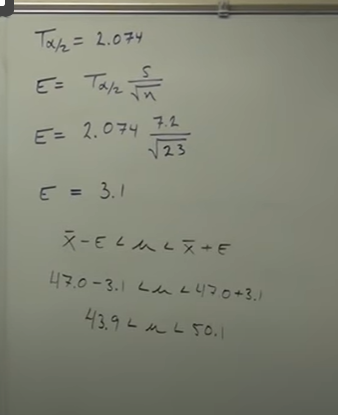 Tα/2 = 2.074
E = Tα/2 s/√n
E = 2.074 7.2/√23
E = 3.1
x̄ - E < μ < x̄ + E
47.0 - 3.1 < μ < 47.0 + 3.1
43.9 < μ < 50.1